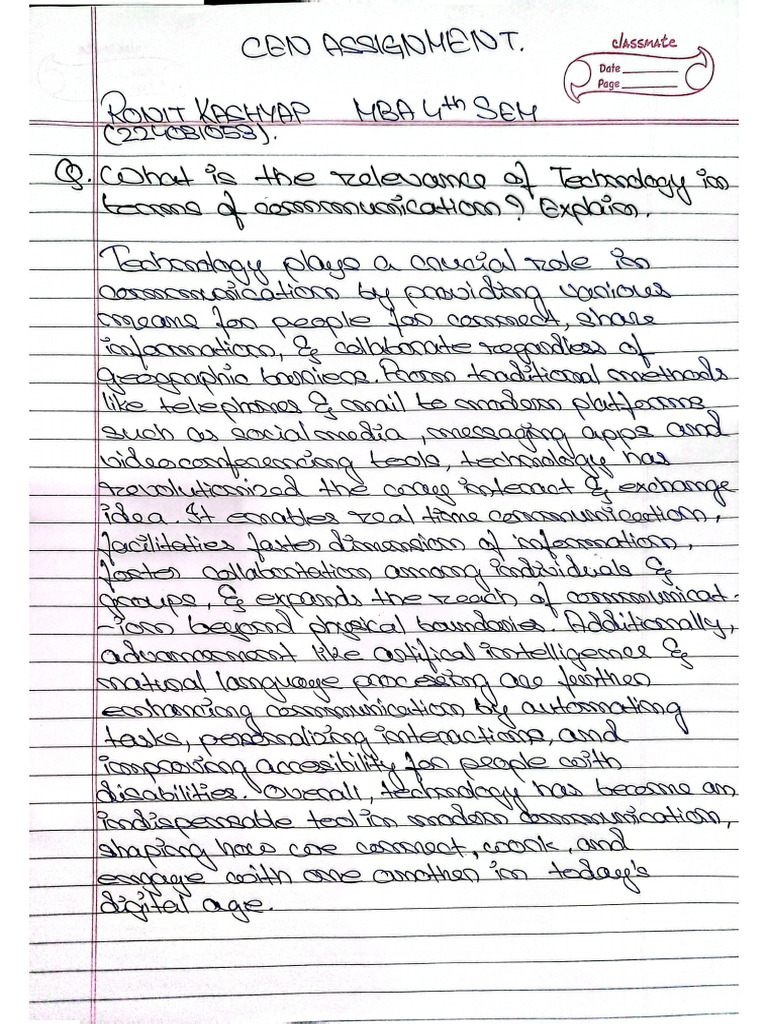 CEN ASSIGNMENT.
classmate
Date
Page
RONIT KASHYAP MBA 4th SEM
(224081058).
Q. What is the relevance of Technology in
terms of communication? Explain.
Technology plays a crucial role in
communication by providing various
means for people for connect, share
information, & collaborate regardless of
geographic barriers. From traditional methods
like telephones & mail to modern platforms
such as social media, messaging apps and
videoconferencing tools, technology has
revolutionized the way interact & exchange
idea. It enables real time communication,
facilitaties faster dimension of information,
foster collabontation among individuals &
groups, & expands the reach of communicat-
-ion beyond physical boundaries. Additionally,
advancement like artifical intelligence &
natural language processing are further
enhancing communication by automating
tasks, personalizing interactions, and
improving accesibility for people with
disabilities. Overall, technology has become an
indispensable tool in modern communication,
shaping how we connect, work, and
engage with one another in today's
digital age.